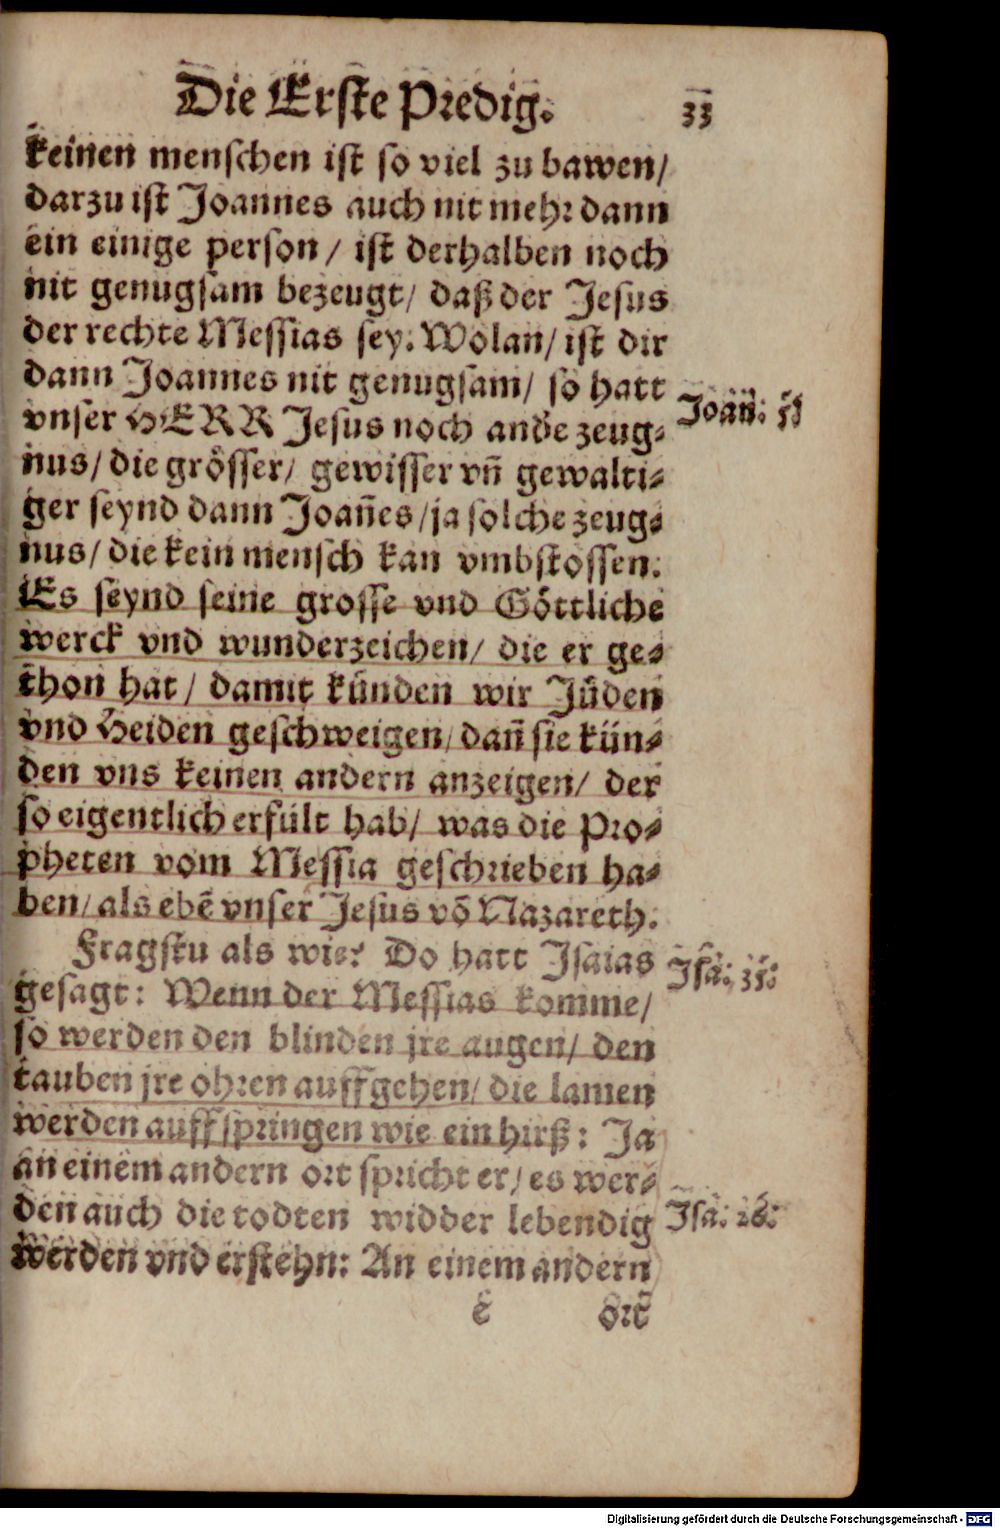 Die Erste Predig. 33
keinen menschen ist so viel zu bawen/
darzu ist Joannes auch nit mehr dann
ein einige person/ ist derhalben noch
nit genugsam bezeugt/ daß der Jesus
der rechte Messias sey. Wolan/ ist dir
dann Joannes nit genugsam/ so hatt
vnser HERR Jesus noch andẽ zeug⸗
nus/ die grösser/ gewisser vñ gewalti⸗
ger seynd dann Joañes/ ja solche zeug⸗
nus/ die kein mensch kan vmbstossen.
Es seynd seine grosse vnd Göttliche
werck vnd wunderzeichen/ die er ge⸗
thon hat/ damit künden wir Jüden
vnd Heiden geschweigen/ dañ sie kün⸗
den vns keinen andern anzeigen/ der
so eigentlich erfült hab/ was die Pro⸗
pheten vom Messia geschrieben ha⸗
ben/ als ebẽ vnser Jesus võ Nazareth.
Fragstu als wie? Do hatt Isaias
gesagt: Wenn der Messias komme/
so werden den blinden jre augen/ den
tauben jre ohren auffgehen/ die lamen
werden auffspringen wie ein hirß: Ja
an einem andern ort spricht er/ es wer⸗
den auch die todten widder lebendig
werden vnd erstehn: An einem andern
ort
Joañ:
Isa: 35:
Isa: 26:
Digitalisierung gefördert durch die Deutsche Forschungsgemeinschaft - DFG